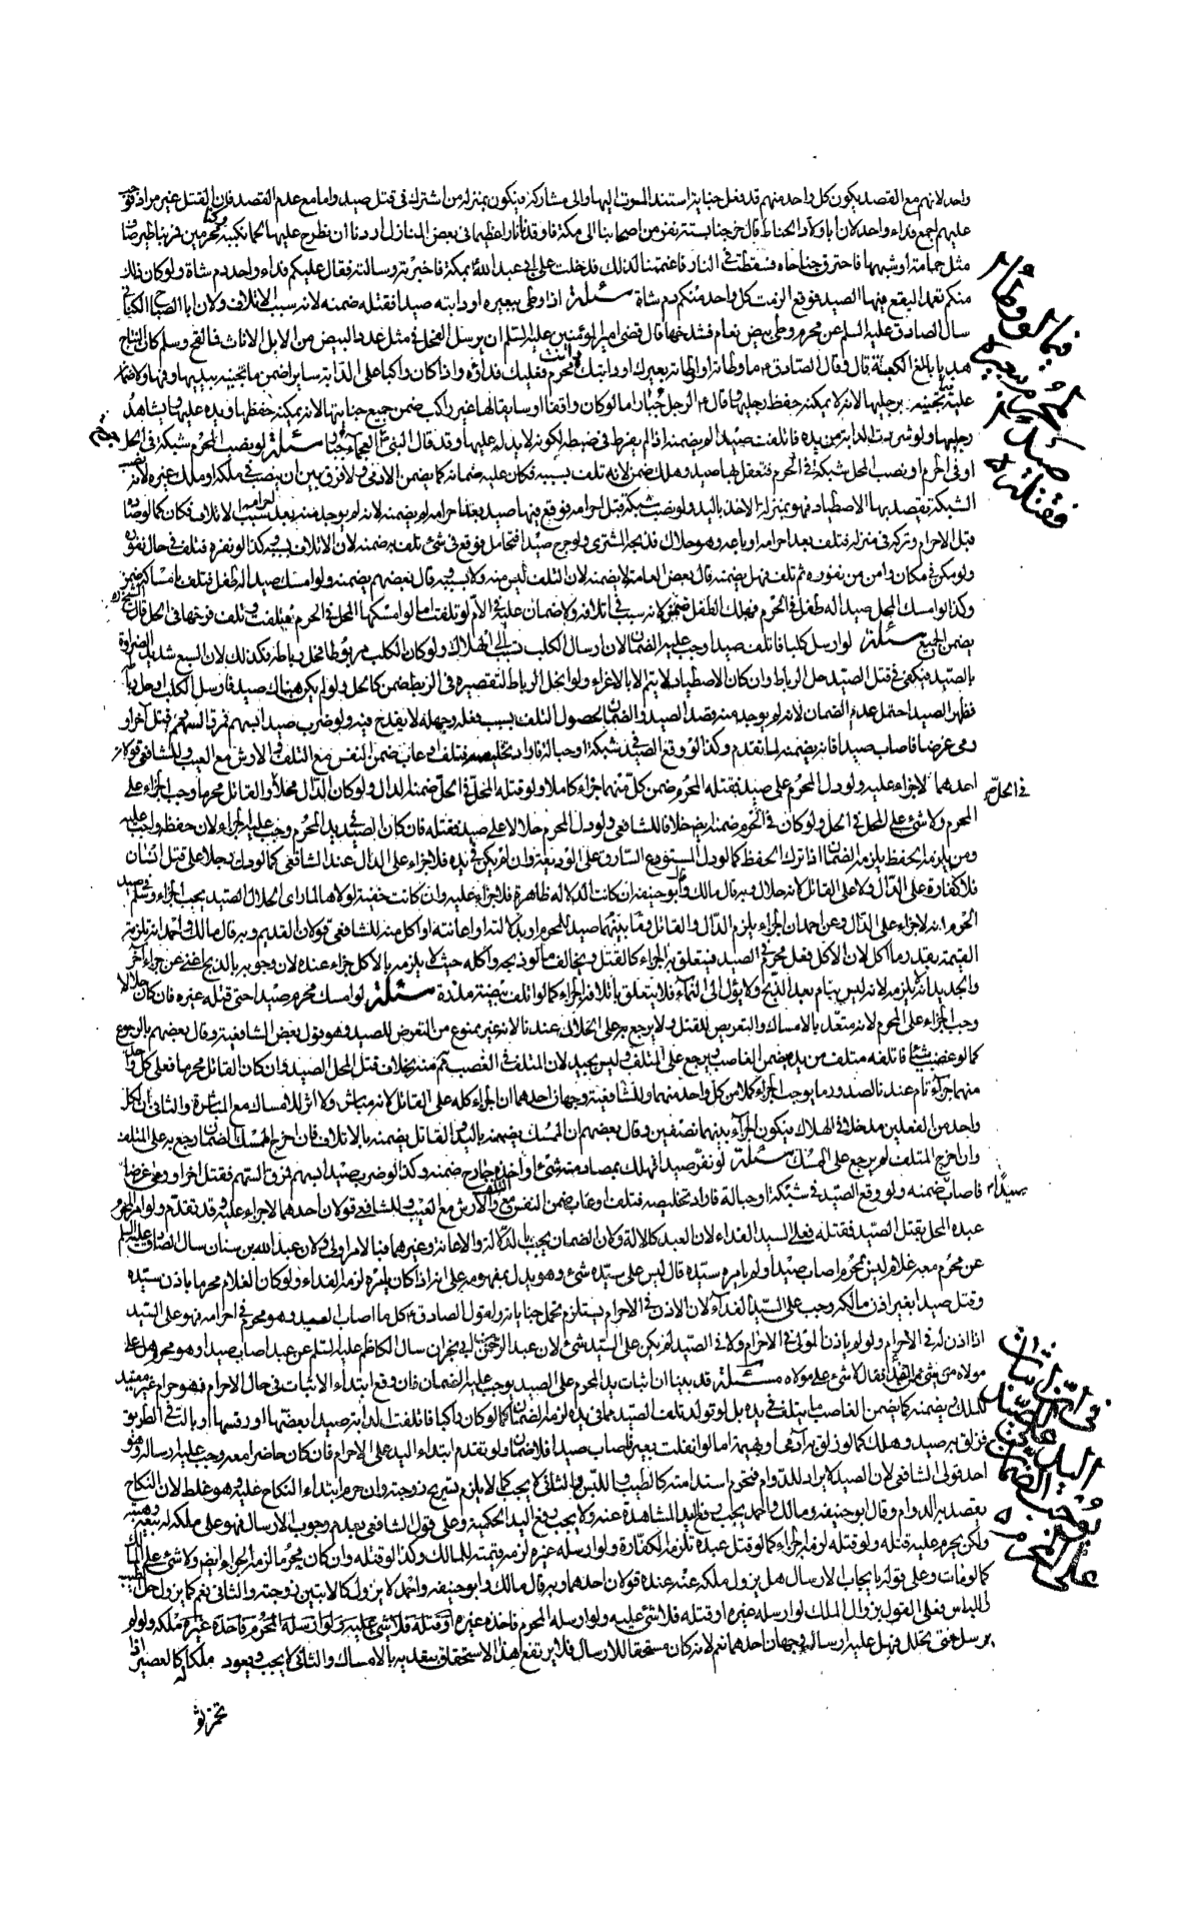 واحد لانهم مع القصد يكون كل واحد منهم قد فعل جناية استند الموت اليها والى مشاركة فيكون بمنزلة من اشترك فى قتل صيد واما مع عدم القصد فان القتل غير مراد فوجب
عليهم اجمع فداء واحد لان ابا ولاد الحناط قال خرجنا بستة نفر من اصحابنا الى مكة فاوقدنا نارا عظيما فى بعض المنازل اردنا ان نطرح عليها لحما نكببه وكنا محرمين فمر بنا طير صاف
مثل حمامة او شبهها فاحترق جناحاه فسقطت فى النار فاغتممنا لذلك فدخلت على ابى عبد الله بمكة فاخبرته وسالته فقال عليكم فداء واحد دم شاة ولو كان ذلك
منكم تعمد اليقع فيها الصيد فوقع الزمت كل واحد منكم دم شاة مسئلة اذا وطى ببعيره او دابته صيدا فقتله ضمنه لانه سبب الاتلاف ولان ابا الصباح الكنانى
سال الصادق عليه السلم عن محرم وطى بيض نعام فشدخها قال قضى امير المؤمنين عليه السلم ان يرسل الفحل فى مثل عدد البيض من الابل الاناث فما لقح وسلم كان النتاج
هديا بالغ الكعبة قال وقال الصادق ع ما وطاته او اوطاته بعيرك او دابتك وانت محرم فعليك فداؤه واذا كان راكبا على الدابة سايرا ضمن ما تجنيه بيديها وفمها ولا ضمان
عليه فيما تجنيه برجليها لانه لا يمكنه حفظ رجليها وقال ع الرجل جبار اما لو كان واقفا او سايقا لها غير راكب ضمن جميع جنايتها لانه يمكنه حفظها ويده عليها ويشاهد
رجليها ولو شردت الدابة من يده فاتلفت صيدا لم يضمنه اذا لم يفرط فى ضبطه لكونه لا يد له عليها وقد قال النبى ع العجماء جبار مسئلة لو نصب المحرم شبكة فى الحل
او فى الحرم او نصب المحل شبكة فى الحرم فتعقل بها صيد وهلك ضمن لانه تلف بسببه فكان عليه ضمانه كما يضمن الادمى ولا فرق بين ان ينصب فى ملكه او ملك غيره لان نصب
الشبكة يقصد بها الاصطياد فهو بمنزلة الاخذ باليد ولو نصب شبكة قبل احرامه فوقع فيها صيد بعد احرامه لم يضمنه لانه لم يوجد منه بعد احرامه سبب الاتلاف فكان كما لو صاده
قبل الاحرام وتركه فى منزله فتلف بعد احرامه او باعه وهو حلال فذبحه المشترى ولو جرح صيدا فتحامل فوقع فى شئ تلف به ضمنه لان الاتلاف بسببه وكذا لو نفره فتلف فى حال نفوره
ولو سكن فى مكان وامن من نفوره ثم تلف فهل يضمنه قال بعض العامة لا يضمنه لان التلف ليس منه ولا بسببه وقال بعضهم يضمنه ولو امسك صيدا له طفل فتلف بامساكه ضمن
وكذا لو امسك المحل صيدا له طفل فى الحرم فهلك الطفل ضمن لانه سبب فى اتلافه ولا ضمان عليه فى الام لو تلفت اما لو امسكها المحل فى الحرم فتلفت وتلف فرخها فى الحل قال الشيخ ره
يضمن الجميع مسئلة لو ارسل كلبا فاتلف صيدا وجب عليه الضمان لان ارسال الكلب تسبب الى الهلاك ولو كان الكلب مربوطا فحل رباطه فكذلك لان السبع شديد الضراوة
بالصيد فيكفى فى قتل الصيد حل الرباط وان كان الاصطياد لا يتم الا بالاغراء ولو انحل الرباط لتقصيره فى الربط ضمن كالحل ولو لم يكن هناك صيد فارسل الكلب او حل رباطه
فظهر الصيد احتمل عدم الضمان لانه لم يوجد منه قصد الصيد والضمان لحصول التلف بسبب فعله وجهله لا يقدح فيه ولو ضرب صيدا بسهم فمرق السهم فقتل آخر او
رمى غرضا فاصاب صيدا فانه يضمنه لما تقدم وكذا لو وقع الصيد فى شبكة او حبالة فاراد تخليصه فتلف او عاب ضمن النفس مع التلف والارش مع العيب وللشافعى قولان
احدهما لا جزاء عليه ولو دل المحرم على صيد فقتله المحرم ضمن كل منهما جزاء كاملا ولو قتله المحل فى الحل ضمنه الدال ولو كان الدال محلا والقاتل محرما وجب الجزاء على
المحرم ولا شئ على المحل فى الحل ولو كان فى الحرم ضمنه ايض خلافا للشافعى ولو دل المحرم حلالا على صيد فقتله فان كان الصيد فى يد المحرم وجب عليه الجزاء لان حفظه واجب عليه
ومن يلزمه الحفظ يلزمه الضمان اذا ترك الحفظ كما لو دل المستودع السارق على الوديعة وان لم يكن فى يده فلا جزاء على الدال عند الشافعى كما لو دل رجلا على قتل انسان
فلا كفارة على الدال ولا على القاتل لانه حلال وبه قال مالك وابو حنيفة ان كانت الدلالة ظاهرة فلا جزاء عليه وان كانت خفية لولاها لما راى الحلال الصيد يجب الجزاء وسلم فى صيد
الحرم انه لا جزاء على الدال وعن احمد ان الجزاء يلزم الدال والقاتل وقتا بينهما صيد المحرم او بدلالته او اعانته او اكل منه للشافعى قولان القديم وبه قال مالك واحمد انه يلزمه
القيمة بقدر ما اكل لان الاكل فعل محرم فى الصيد فيتعلق به الجزاء كالقتل ويخالف ما لو ذبحه واكله حيث لا يلزمه بالاكل جزاء عنده لان وجوبه بالذبح اغنى عن جزاء آخر
والجديد انه لا يلزمه لانه ليس بنام بعد الذبح ولا يؤل الى النماء فلا يتعلق باتلافه الجزاء كما لو اتلف بيضة مذرة مسئلة لو امسك محرم صيدا حتى قتله غيره فان كان حلالا
وجب الجزاء على المحرم لانه متعد بالامساك والتعريض للقتل ولا يرجع به على الحلال عندنا لانه غير ممنوع من التعرض للصيد وهو قول بعض الشافعية وقال بعضهم بالرجوع
كما لو غصب شيئا فاتلفه متلف من يده يضمن الغاصب ويرجع على المتلف وليس بجيد لان المتلف فى الغصب ثم منه بخلاف قتل المحل الصيد وان كان القاتل محرما فعلى كل واحد
منهما جزاء تام عندنا لصدور ما يوجب الجزاء كملا من كل واحد منهما وللشافعية وجهان احدهما ان الجزاء كله على القاتل لانه مباشر ولا اثر للامساك مع المباشرة والثانى ان لكل
واحد من الفعلين مدخلا فى الهلاك فيكون الجزاء بينهما نصفين وقال بعضهم ان الممسك يضمنه باليد والقاتل يضمنه بالاتلاف فان اخرج الممسك الضمان رجع به على المتلف
وان اخرج المتلف لم يرجع على الممسك مسئلة لو نفر صيدا فهلك بمصادمة شئ او اخذه جارح ضمنه وكذا لو ضرب صيدا بسهم فمرق السهم فقتل اخر او رمى غرضا
فاصاب صيدا ضمنه ولو وقع الصيد فى شبكة او حبالة فاراد تخليصه فتلف او عاب ضمن النفس مع التلف والارش مع العيب وللشافعى قولان احدهما لا جزاء عليه وقد تقدم ولو امر المحرم
عبده المحل بقتل الصيد فقتله فعلى السيد الفداء لان العبد كالالة ولان الضمان يجب بالدلالة والاعانة وغيرهما فبالامر اولى ولان عبد الله بن سنان سال الصادق عليه السلم
عن محرم معه غلام ليس بمحرم اصاب صيدا ولم يامره سيده قال ليس على سيده شئ وهو يدل بمفهومه على انه اذا كان بامره لزمه الفداء ولو كان الغلام محرما باذن سيده
وقتل صيدا بغير اذن مالكه وجب على السيد الفداء لان الاذن فى الاحرام يستلزم تحمل جنايته ولقول الصادق ع كل ما اصاب العبد وهو محرم فى احرامه فهو على السيد
اذا اذن له فى الاحرام ولو لم ياذن المولى فى الاحرام ولا فى الصيد لم يكن على السيد شئ لان عبد الرحمن بن ابى نجران سال الكاظم عليه السلم عن عبد اصاب صيدا وهو محرم هل على
مولاه شئ من الفداء فقال لا شئ على مولاه مسئلة قد بينا ان اثبات يد المحرم على الصيد يوجب عليه الضمان فان وقع ابتداء الاثبات فى حال الاحرام فهو حرام غير مفيد
للملك ويضمنه كما يضمن الغاصب ما يتلف فى يده بل لو تولد تلف الصيد مما فى يده لزمه الضمان كما لو كان راكبا فاتلفت الدابة صيدا بعضتها او رفسها او بالت فى الطريق
فزلق به صيد وهلك كما لو زلق به آدمى او بهيمة اما لو انفلت بعيره فاصاب صيدا فلا ضمان ولو تقدم ابتداء اليد على الاحرام فان كان حاضرا معه وجب عليه ارساله وهو
احد قولى الشافعى لان الصيد لا يراد للدوام فتحرم استدامته كالطيب واللبس والثانى لا يجب كما لا يلزم تسريح زوجته وان حرم ابتداء النكاح عليه وهو غلط لان النكاح
يقصد به الدوام وقال ابو حنيفة ومالك واحمد يجب رفع اليد المشاهدة عنه ولا يجب رفع اليد الحكمية وعلى قول الشافعى بعدم وجوب الارسال فهو على ملكه له بيعه وهبته
ولكن يحرم عليه قتله ولو قتله لزمه الجزاء كما لو قتل عبده تلزمه الكفارة ولو ارسله غيره لزمه قيمته للمالك وكذا لو قتله وان كان محرما لزمه الجزاء ايض ولا شئ على المالك
كما لو مات وعلى قوله بايجاب الارسال هل يزول ملكه عنه عنده قولان احدهما وبه قال مالك وابو حنيفة واحمد لا يزول كما لا تبين زوجته والثانى نعم كما يزول حل الطيب
واللباس فعلى القول بزوال الملك لو ارسله غيره او قتله فلا شئ عليه ولو ارسله المحرم فاخذه غيره او قتله فلا شئ عليه ولو ارسله المحرم فاخذه غيره ملكه ولو لم
يرسل حتى تحلل فهل عليه ارساله وجهان احدهما نعم لانه كان مستحقا للارسال فلا يرتفع هذا الاستحقاق بتعديه بالامساك والثانى لا يجب ويعود ملكا له كالعصير اذا
تخمر ثم
فيما لو وطى
المحرم ببعيره
صيدا
فقتله
فى الحل صح
صيدا
فى ان اثبات
اليد على الصيد
يوجب الضمان
على المحرم